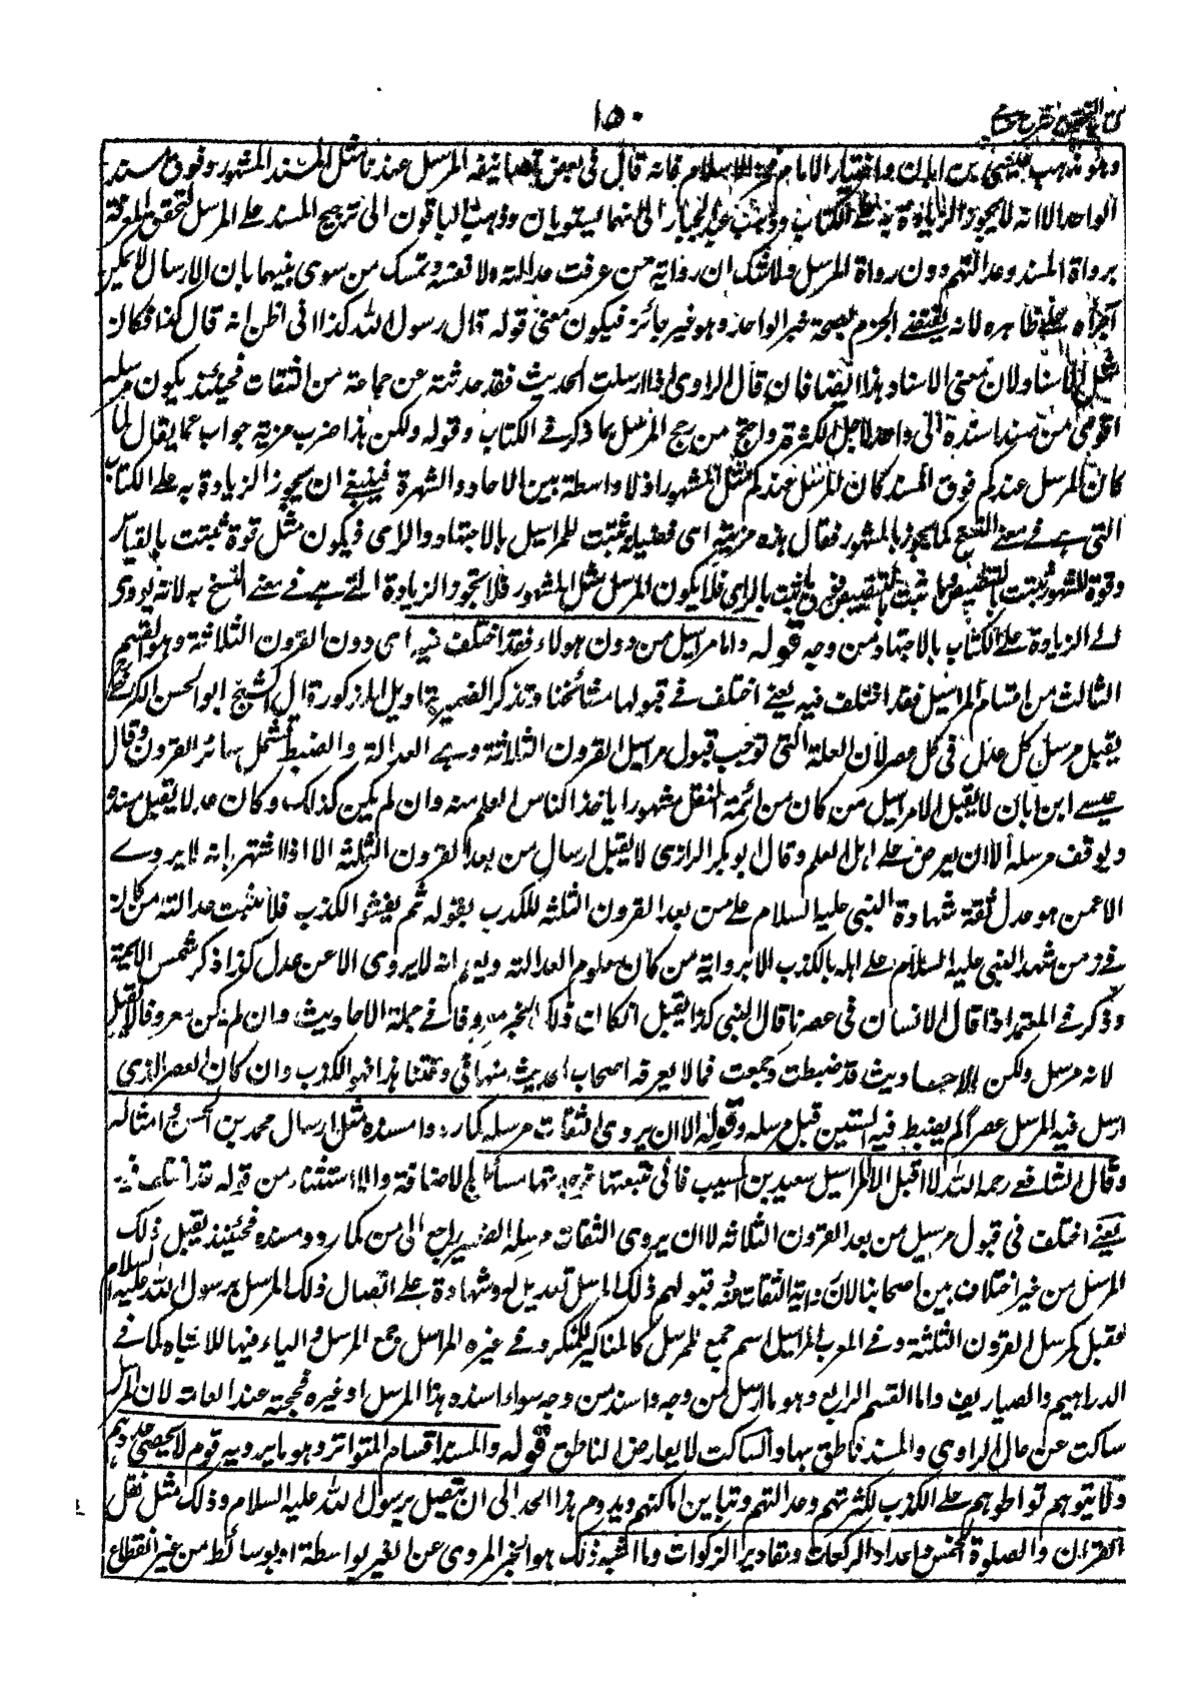 ١٥٠
وهو مذهب عيسى بن ابان واختيار الامام فخر الاسلام فانه قال في بعض تصانيفه المرسل عندنا مثل المسند المشهور وفوق مسند
الواحد الا انه لا يجوز الزيادة به على الكتاب وذهب عبد الجبار الى انهما يستويان وذهب الباقون الى ترجيح المسند على المرسل لتحقق المعرفة
برواة المسند وعدالتهم دون رواة المرسل ولا شك ان رواية من عرفت عدالته ولا تمسك من سوى بينهما بان الارسال لا يمكن
اجراؤه على ظاهره لانه يقتضى الجزم بصحة خبر الواحد وهو غير جائز فيكون معنى قوله قال رسول الله كذا انى اظن انه قال كذا فكان
مثل الاسناد لان معنى الاسناد هذا ايضا فان قال الراوى اذا ارسلت الحديث فقد حدثته عن جماعة من الثقات فحينئذ يكون مرسله
اقوى من مسند اسنده الى واحد لاجل الكثرة واحتج من رجح المرسل بما ذكر فى الكتاب وقوله ولكن هذا ضرب مزية جواب عما يقال لما
كان المرسل عندكم فوق المسند كان المرسل عندكم مثل المشهور اذ لا واسطة بين الاحاد والشهرة فينبغى ان يجوز الزيادة به على الكتاب
التى هى فى معنى النسخ كما يجوز بالمشهور فقال هذه مزية اى فضيلة ثبتت للمراسيل بالاجتهاد والراى فيكون مثل قوة ثبتت بالقياس
وقوة المشهور ثبتت بالتنصيص وما ثبت بالتنصيص فوق ما ثبت بالراى فلا يكون المرسل مثل المشهور فلا تجوز الزيادة التى هى فى معنى النسخ به لانه يودى
الى الزيادة على الكتاب بالاجتهاد من وجه قوله واما مراسيل من دون هولاء فقد اختلف فيه اى دون القرون الثلاثة وهو القسم
الثالث من اقسام المراسيل فقد اختلف فيه يعنى اختلف فى قبولها مشائخنا وتذكر الضمير بتاويل المذكور قال الشيخ ابو الحسن الكرخى
يقبل مرسل كل عدل فى كل عصر لان العلة التى توجب قبول مراسيل القرون الثلاثة وهى العدالة والضبط تشمل سائر القرون وقال
عيسى ابن ابان لا يقبل الا مراسيل من كان من ائمة النقل مشهورا ياخذ الناس العلم منه وان لم يكن كذلك وكان عدلا يقبل مسنده
ويوقف مرسله الا ان يعرض على اهل العلم وقال ابو بكر الرازى لا يقبل ارسال من بعد القرون الثلثة الا اذا اشتهر انه لا يروى
الا عمن هو عدل ثقة شهادة النبى عليه السلام على من بعد القرون الثلثة بالكذب بقوله ثم يفشو الكذب فلا تثبت عدالته من كان
فى زمن شهد النبى عليه السلام على اهله بالكذب الا برواية من كان معلوم العدالة ويعلم انه لا يروى الا عن عدل كذا ذكر شمس الائمة
وذكر فى المعتمد اذا قال الانسان فى عصرنا قال النبى كذا يقبل ان كان ذلك الخبر معروفا فى جملة الاحاديث وان لم يكن معروفا لا يقبل
لا لانه مرسل ولكن لان الاحاديث قد ضبطت وجمعت فما لا يعرفه اصحاب الحديث منها فى وقتنا هذا فهو الكذب وان كان العصر الذى
ارسل فيه المرسل عصرا لم يضبط فيه السنن قبل مرسله وقوله الا ان يروى الثقات مرسله كما رووا مسنده مثل ارسال محمد بن الحسن وامثاله
وقال الشافعى رحمه الله لا اقبل الا مراسيل سعيد بن المسيب فانى تتبعتها فوجدتها مسانيد بالاضافة والاستثناء من قوله فقد اختلف فيه
يعنى اختلف فى قبول مرسيل من بعد القرون الثلاثة الا ان يروى الثقات مرسله الضمير راجع الى من كما رووا مسنده فحينئذ يقبل ذلك
المرسل من غير اختلاف بين اصحابنا لان رواية الثقات عنه وقبولهم ذلك المرسل تعديل له وشهادة على اتصال ذلك المرسل برسول الله عليه السلام
فقبل كمرسل القرون الثلثة وفى المغرب المراسيل اسم جمع للمرسل كالمناكير للمنكر وفى غيره المراسل جمع المرسل والياء فيها للاشباع كما فى
الدراهيم والصياريف واما القسم الرابع وهو ما ارسل من وجه واسند من وجه سواء اسنده هذا المرسل او غيره فحجة عند العامة لان المرسل
ساكت عن حال الراوى والمسند ناطق بها والساكت لا يعارض الناطق قوله والمسند اقسام المتواتر وهو ما يرويه قوم لا يحصى عددهم
ولا يتوهم تواطوهم على الكذب لكثرتهم وعدالتهم وتباين اماكنهم ويدوم هذا الحد الى ان يتصل برسول الله عليه السلام وذلك مثل نقل
القران والصلوة الخمس واعداد الركعات ومقادير الزكوات وما اشبه ذلك هو الخبر المروى عن الغير بواسطة او بوسائط من غير انقطاع